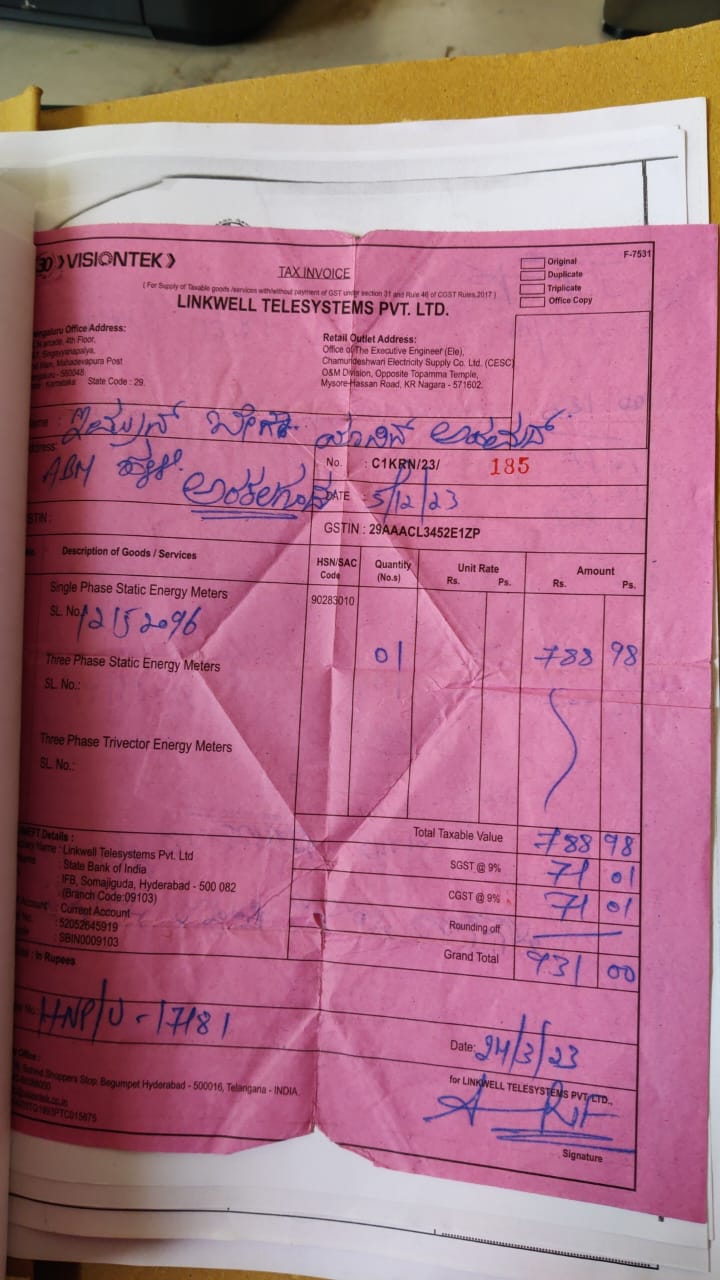 VISIONTEK
TAX INVOICE
( For Supply of Taxable goods /services with/without payment of GST under section 31 and Rule 46 of CGST Rules,2017 )
LINKWELL TELESYSTEMS PVT. LTD.
Original
Duplicate
Triplicate
Office Copy
F-7531
Office Address:
arcade, 4th Floor,
Singayyanapalya,
Main, Mahadevapura Post
- 560048.
Karnataka State Code : 29.
Retail Outlet Address:
Office of The Executive Engineer (Ele),
Chamundeshwari Electricity Supply Co. Ltd. (CESC)
O&M Division, Opposite Topamma Temple,
Mysore-Hassan Road, KR Nagara - 571602.
ABM
No. : C1KRN/23/ 185
DATE : 5/12/23
GSTIN : 29AAACL3452E1ZP
Description of Goods / Services
HSN/SAC Code
Quantity (No.s)
Unit Rate Rs. Ps.
Amount Rs. Ps.
Single Phase Static Energy Meters 90283010
SL. No. 12152096
01 788 98
Three Phase Static Energy Meters
SL. No.:
Three Phase Trivector Energy Meters
SL. No.:
Total Taxable Value 788 98
SGST @ 9% 71 01
CGST @ 9% 71 01
Rounding off
Grand Total 931 00
Details :
Name : Linkwell Telesystems Pvt. Ltd
: State Bank of India
IFB, Somajiguda, Hyderabad - 500 082
(Branch Code:09103)
Account : Current Account
No. : 52052645919
: SBIN0009103
: In Rupees
HNP/U-17181
Date: 24/3/23
for LINKWELL TELESYSTEMS PVT. LTD.,
Behind Shoppers Stop, Begumpet Hyderabad - 500016, Telangana - INDIA.
Signature